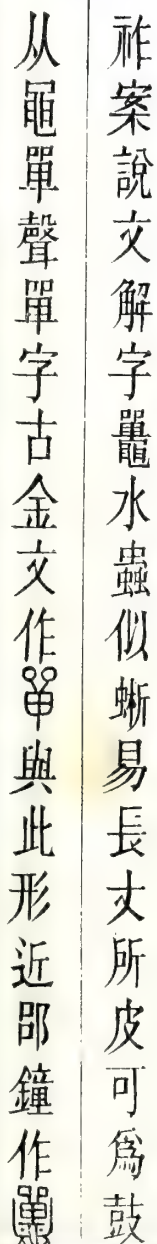 祚案說文解字鼉水蟲似蜥易長丈所皮可爲鼓
从黽單聲單字古金文作與此形近郘鐘作